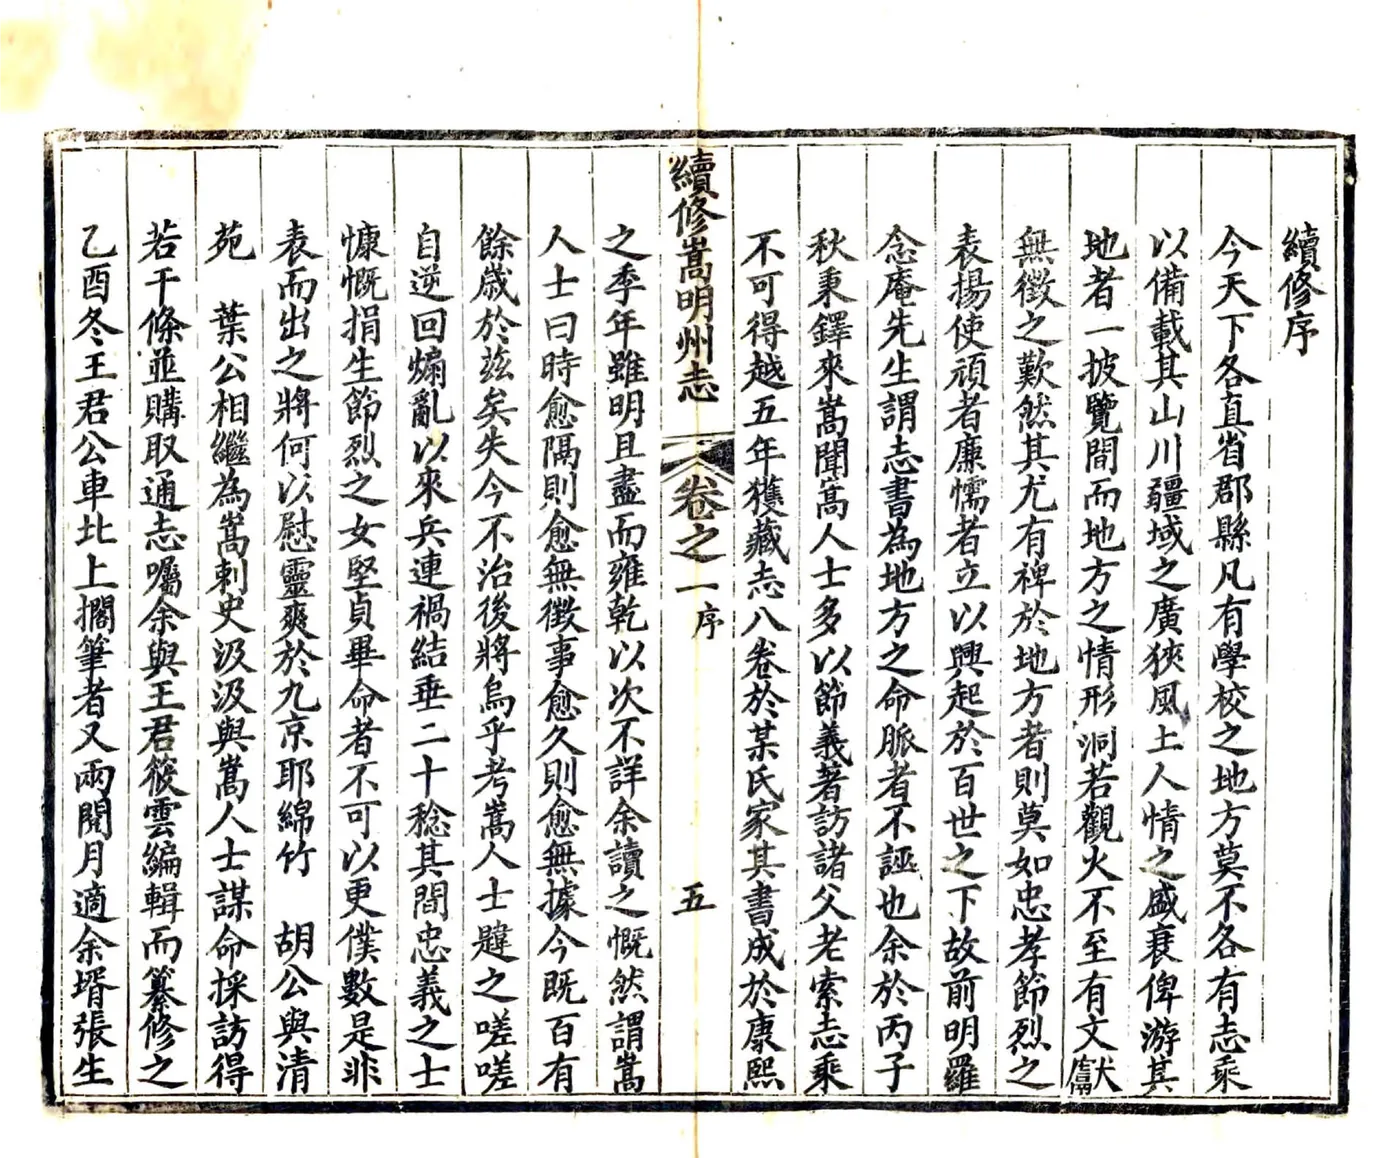 續修序
今天下各直省郡縣凡有學校之地方莫不各有志乘
以備載其山川疆域之廣狹風土人情之盛衰俾游其
地者一披覽間而地方之情形洞若觀火不至有文獻
無徵之歎然其尤有裨於地方者則莫如忠孝節烈之
表揚使頑者廉懦者立以興起於百世之下故前明羅
念庵先生謂志書為地方之命脈者不誣也余於丙子
秋秉鐸來嵩聞嵩人士多以節義著訪諸父老索志乘
不可得越五年獲藏志八卷於某氏家其書成於康熙
續修嵩明州志 卷之一 序 五
之季年雖明且盡而雍乾以次不詳余讀之慨然謂嵩
人士曰時愈隔則愈無徵事愈久則愈無據今既百有
餘歲於茲矣失今不治後將烏乎考嵩人士韙之嗟嗟
自逆回煽亂以來兵連禍結垂二十稔其間忠義之士
慷慨捐生節烈之女堅貞畢命者不可以更僕數是非
表而出之將何以慰靈爽於九京耶綿竹 胡公與清
苑 葉公相繼為嵩刺史汲汲與嵩人士謀命採訪得
若干條並購取通志囑余與王君筱雲編輯而纂修之
乙酉冬王君公車北上擱筆者又兩閱月適余壻張生